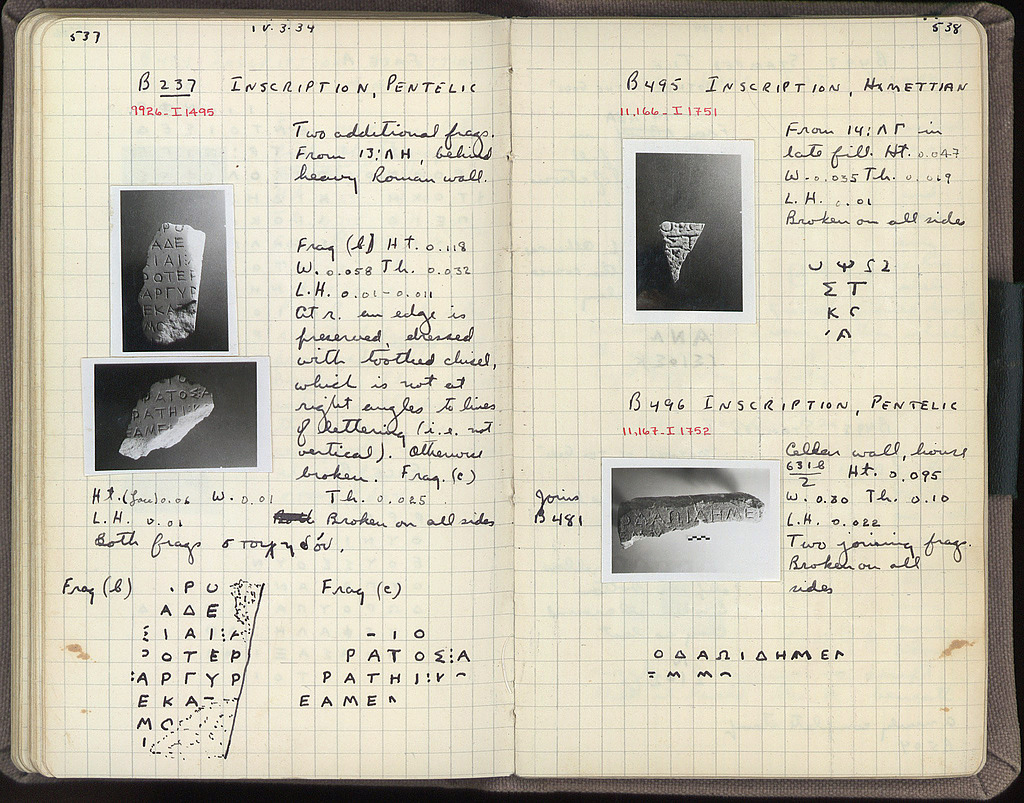 537
IV.3.34
B 237 INSCRIPTION, PENTELIC
9926-I 1495
Two additional frags.
From 13:ΛΗ, behind
heavy Roman wall.
Frag (b) Ht. 0.118
W. 0.058 Th. 0.032
L.H. 0.01-0.011
At r. an edge is
preserved, dressed
with toothed chisel,
which is not at
right angles to lines
of lettering (i.e. not
vertical). Otherwise
broken. Frag. (c)
Ht. 0.06 W. 0.01 Th. 0.025
L.H. 0.01 Broken on all sides
Both frags στοιχηδόν.
Frag (b)
. Ρ Υ
Α Δ Ε
Ι Α Ι
Ο Τ Ε Ρ
: Α Ρ Γ Υ Ρ
Ε Κ Α
Μ Ο
Ι
Frag (c)
Ι Ο
Ρ Α Τ Ο Σ : Α
Ρ Α Τ Η Ι :
Ε Α Μ Ε
538
B 495 INSCRIPTION, HYMETTIAN
11,166-I 1751
From 14:ΛΓ in
late fill. Ht. 0.047
W. 0.035 Th. 0.019
L.H. 0.01
Broken on all sides
Σ Τ
Κ
Α
B 496 INSCRIPTION, PENTELIC
11,167-I 1752
Joins
B 481
Cellar wall, house
631b/2 Ht. 0.095
W. 0.30 Th. 0.10
L.H. 0.022
Two joining frags.
Broken on all
sides
Ο Δ Α Ω Ι Δ Η Μ Ε